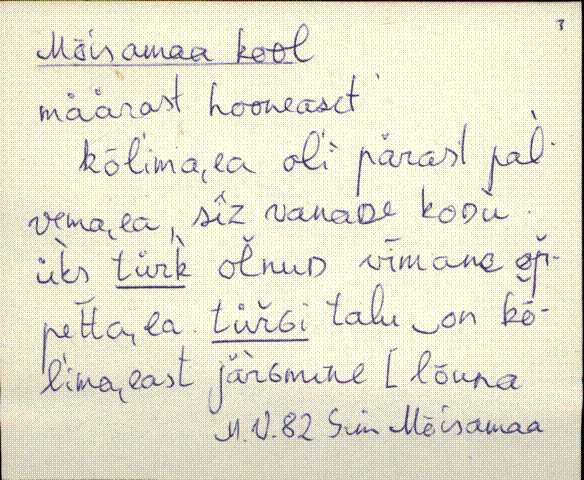 3
Mõisamaa kool
määrast hooneaset
kõlima,ea oli pärast pàl-
vema,ea, sîz vanaDe koDù.
üks tür̀k ol̆nuD vīmane ɞ̆ṕi-
petta,ea. tür̆Gi talu on kō-
l'ima,east jär̀Gmine [ lõuna
M.V.82 Siim Mõisamaa